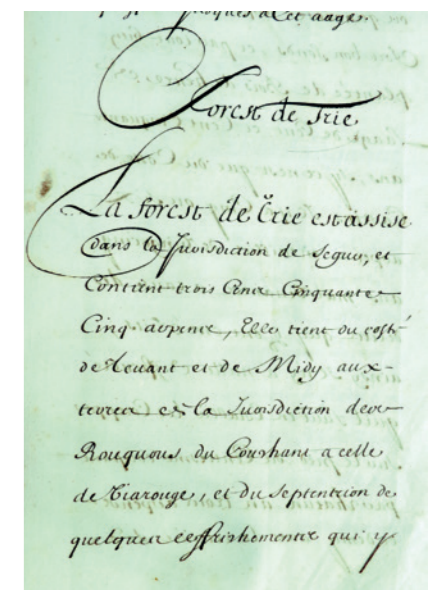 proques a cet aage.
Forest de Trie
La forest de Trie est assise
dans la Jurisdiction de Segur, et
Contient trois Cens Cinquante
Cinq arpens, Elle tient du costé
de Levant et de Midy aux
terres et la Jurisdiction de
Rouquous du Couchant a celle
de Tiarouge, et du Septentrion de
quelques deffrichements qui y